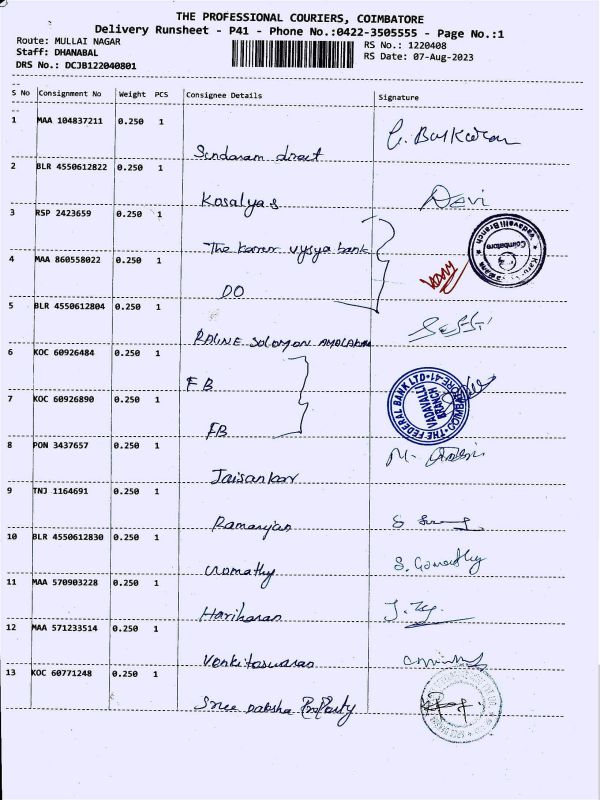 THE PROFESSIONAL COURIERS, COIMBATORE
Delivery Runsheet - P41 - Phone No.:0422-3505555 - Page No.:1
Route: MULLAI NAGAR RS No.: 1220408
Staff: DHANABAL RS Date: 07-Aug-2023
DRS No.: DCJB122040801
S No Consignment No Weight PCS Consignee Details Signature
1 MAA 104837211 0.250 1
Sundaram direct
2 BLR 4550612822 0.250 1
Kosalya s Devi
3 RSP 2423659 0.250 1
The Karur vysya bank
Vadavalli Branch
Coimbatore
4 MAA 860558022 0.250 1
DO
5 BLR 4550612804 0.250 1
SOLOMON
6 KOC 60926484 0.250 1
FB
THE FEDERAL BANK LTD COIMBATORE-41
VADAVALLI
BRANCH
7 KOC 60926890 0.250 1
FB
8 PON 3437657 0.250 1
Jaisankar
9 TNJ 1164691 0.250 1
10 BLR 4550612830 0.250 1
S. Gomathy
11 MAA 570903228 0.250 1
Hariharan
12 MAA 571233514 0.250 1
13 KOC 60771248 0.250 1
Sree Daksha Property